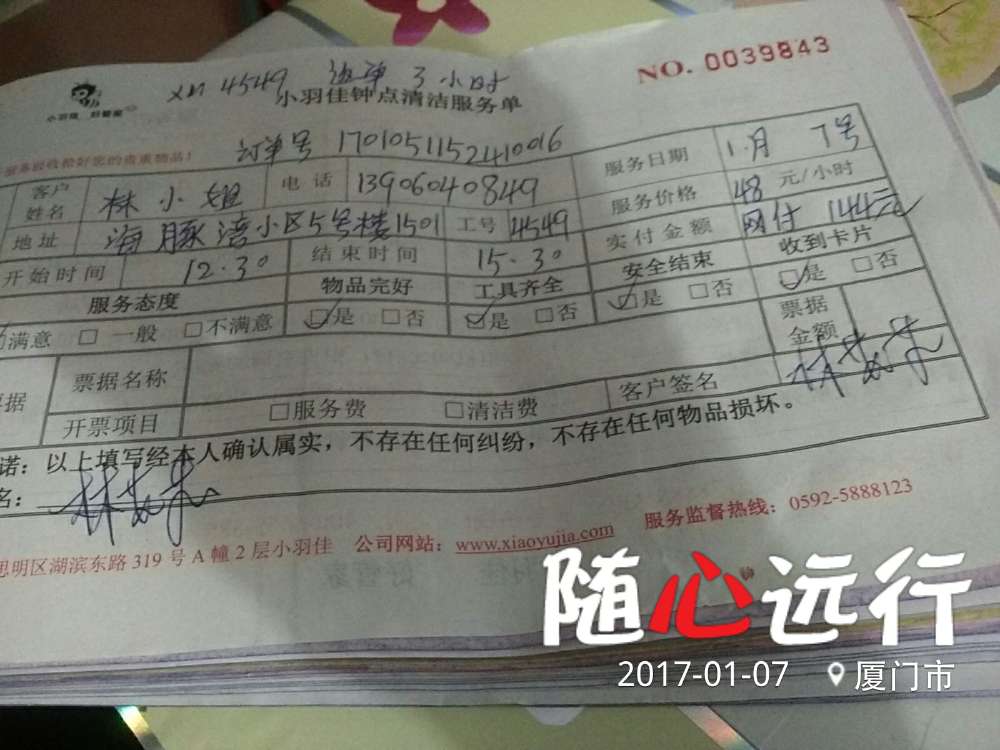 NO. 0039843
XM 4549 3小时
小羽佳 好管家
小羽佳钟点清洁服务单
订单号 1701051152410016
的贵重物品！
客户姓名 林小姐 电话 13906040849 服务日期 1月7号
地址 海豚湾小区5号楼1501 工号 4549 服务价格 48 元/小时
开始时间 12.30 结束时间 15.30 实付金额 网付 144元
服务态度 物品完好 工具齐全 安全结束 收到卡片
满意 □ 一般 □ 不满意 ☑是 □否 ☑是 □否 ☑是 □否 ☑是 □否
据 票据名称 票据金额
开票项目 □服务费 □清洁费 客户签名
诺：以上填写经本人确认属实，不存在任何纠纷，不存在任何物品损坏。
名：
思明区湖滨东路 319 号 A 幢 2 层小羽佳 公司网站：www.xiaoyujia.com 服务监督热线：0592-5888123
随心远行
2017-01-07 厦门市